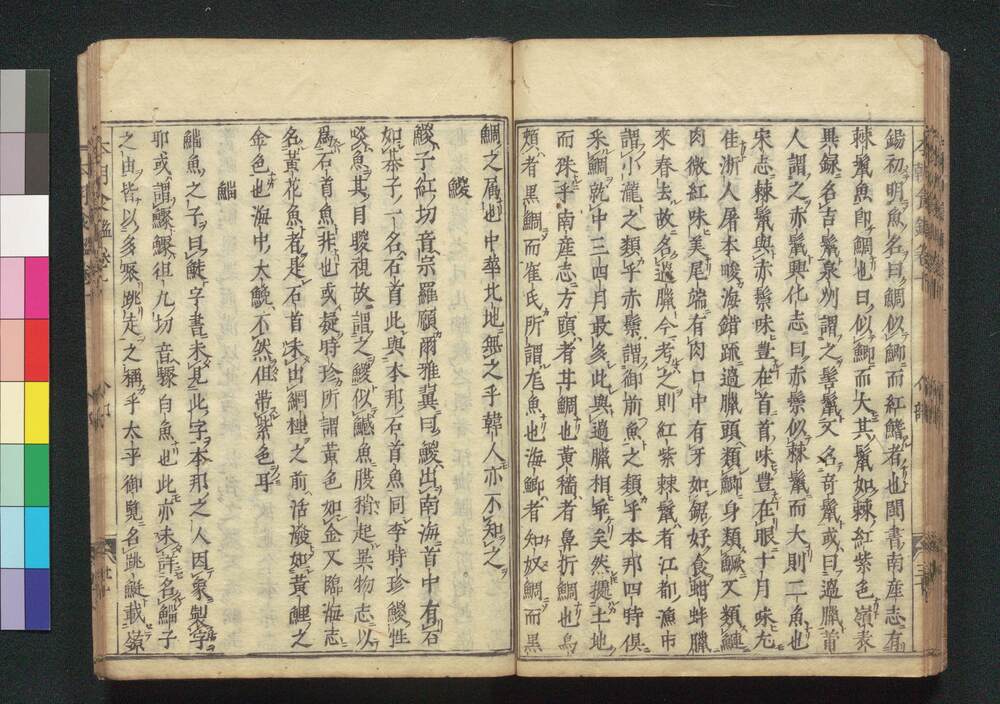 錫初明魚名曰鯛似鯽而紅鰭者也閩書南産志有
棘鬣魚即鯛也曰似鯽而大其鬣如棘紅紫色嶺表
異録名吉鬣泉州謂之髻鬣又名奇鬣或曰過臘莆
人謂之赤鬣興化志曰赤鬃似棘鬣而大則二魚也
宋志棘鬣與赤鬃味豊在首首味豊在眼十月味尤
佳浙人屠本畯海錯疏過臘頭類鯽身類鱖又類鰱
肉微紅味美尾端有肉口中有牙如鋸好食蚶蚌臘
來春去故名過臘今考之則紅紫棘鬣者江都漁市
謂小瀧之類乎赤鬃謂御前魚之類乎本邦四時倶
采鯛就中三四月最多此與過臘相半矣然據土地
而殊乎南産志方頭者甘鯛也黄穡者鼻折鯛也烏
頬者黒鯛而崔氏所謂尨魚也海鯽者知奴鯛而黒
鯛之屬也中華北地無之乎韓人亦不知之
鯼
鯼子紅切音宗羅願爾雅翼曰鯼出南海首中有石
如棊子一名石首此與本邦石首魚同李時珍鯼性
啖魚其目䁓視故謂之鯼似鱤魚腹稍起異物志以
爲石首魚非也或疑時珍所謂黄色如金又臨海志
名黄花魚者是石首未出網梱之前活溌如黄鯉之
金色也海中大鯼不然但帶紫色耳
鯔
鯔魚之子曰鮏字書未見此字本邦之人因象製字
耶或謂鱫鱫徂九切音驟白魚也此亦未詳名鯔子
之由皆以多聚跳走之稱乎太平御覽名跳䱓載嶺